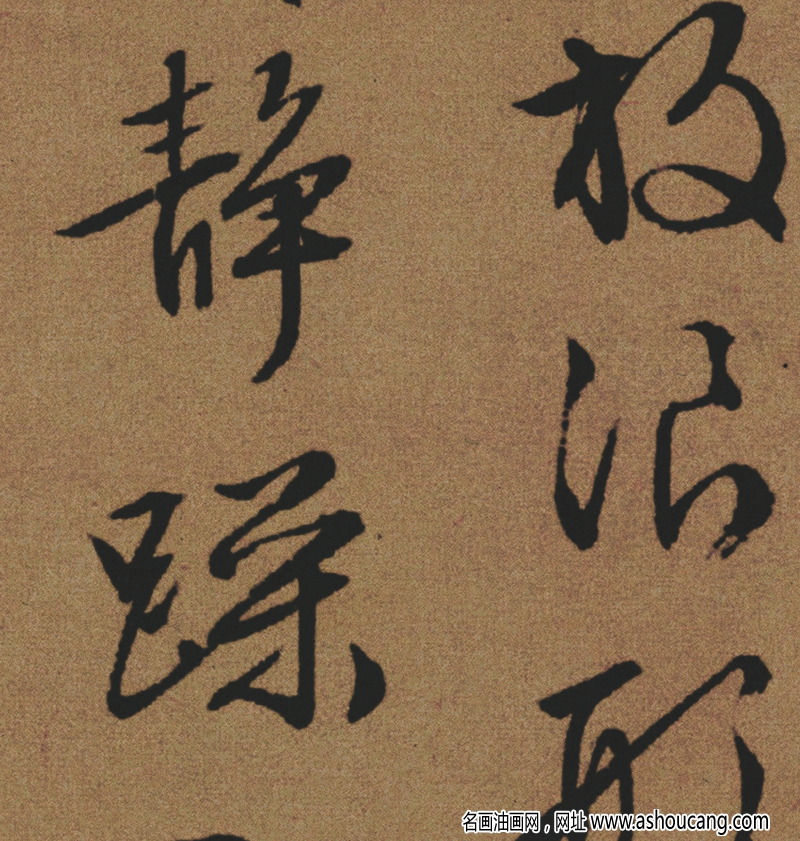 放浪形
靜躁
名画油画网，网址 www.ashoucang.com